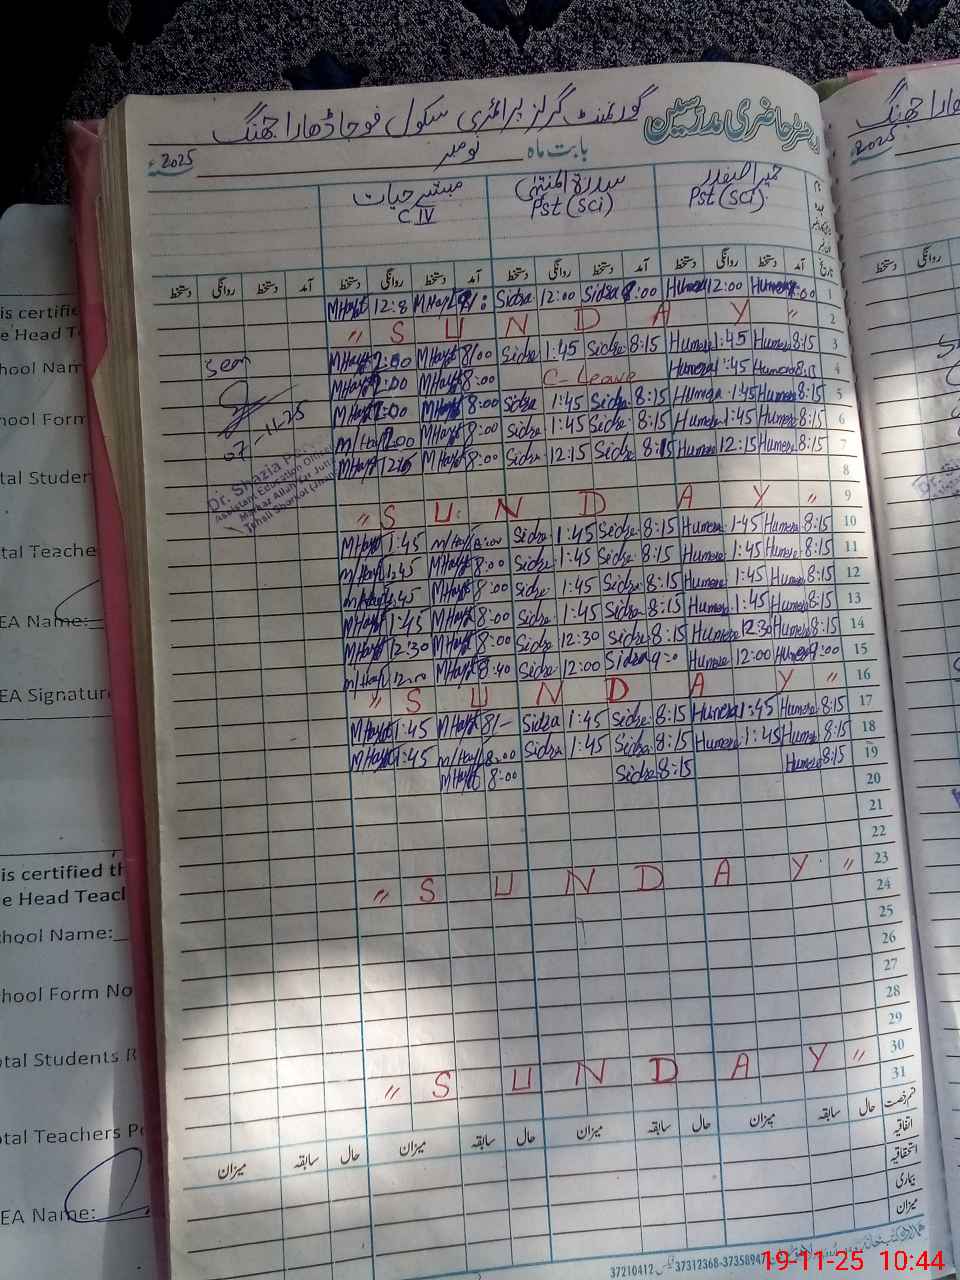 گورنمنٹ گرلز پرائمری سکول فوجا ڈھارا جھنگ
رجسٹر حاضری مدرسین
بابت ماہ نومبر 2025ء
مبشر حیات
C IV
سدرۃ المنتہیٰ
Pst (Sci)
حمیرا صفدر
Pst (Sci)
تاریخ آمد دستخط روانگی دستخط آمد دستخط روانگی دستخط آمد دستخط روانگی دستخط آمد دستخط روانگی دستخط
M Hayat 12:8 M Hayat Sidra 12:00 Sidra 8:00 Humera 12:00 Humera 1
" S U N D A Y " 2
M Hayat M Hayat 8/00 Sidra 1:45 Sidra 8:15 Humera 1:45 Humera 8:15 3
M Hayat M Hayat 8:00 C-Leave Humera 1:45 Humera 4
M Hayat M Hayat 8:00 Sidra 1:45 Sidra 8:15 Humera 1:45 Humera 8:15 5
M Hayat M Hayat 8:00 Sidra 1:45 Sidra 8:15 Humera 1:45 Humera 8:15 6
M Hayat M Hayat 8:00 Sidra 12:15 Sidra 8:15 Humera 12:15 Humera 8:15 7
8
" S U N D A Y " 9
M Hayat 1:45 M Hayat 8:00 Sidra 1:45 Sidra 8:15 Humera 1:45 Humera 8:15 10
M Hayat 1:45 M Hayat 8:00 Sidra 1:45 Sidra 8:15 Humera 1:45 Humera 8:15 11
M Hayat 1:45 M Hayat 8:00 Sidra 1:45 Sidra 8:15 Humera 1:45 Humera 8:15 12
M Hayat 1:45 M Hayat 8:00 Sidra 1:45 Sidra 8:15 Humera 1:45 Humera 8:15 13
M Hayat 12:30 M Hayat 8:00 Sidra 12:30 Sidra 8:15 Humera 12:30 Humera 8:15 14
M Hayat 12:00 M Hayat 8:40 Sidra 12:00 Sidra Humera 12:00 Humera 9:00 15
" S U N D A Y " 16
M Hayat 1:45 M Hayat 8/- Sidra 1:45 Sidra 8:15 Humera 1:45 Humera 8:15 17
M Hayat 1:45 M Hayat 8:00 Sidra 1:45 Sidra 8:15 Humera 1:45 Humera 8:15 18
M Hayat 8:00 Sidra 8:15 Humera 8:15 19
20
21
22
" S U N D A Y " 23
24
25
26
27
28
29
" S U N D A Y " 30
31
Seen
07-11-25
Dr. Shazia
Assistant Education Officer
Markaz Allah Yar Juta
Tehsil Shorkot (Jhang)
قسم رخصت حال سابقہ میزان حال سابقہ میزان حال سابقہ میزان حال سابقہ میزان
اتفاقیہ
استحقاقیہ
بیماری
میزان
37210412
is certifie
e Head Te
hool Nam
hool Form
tal Studen
tal Teache
EA Name:
EA Signature
is certified th
e Head Teach
chool Name:
chool Form No
otal Students R
otal Teachers Po
EA Name:
2025ء
روانگی دستخط
19-11-25 10:44